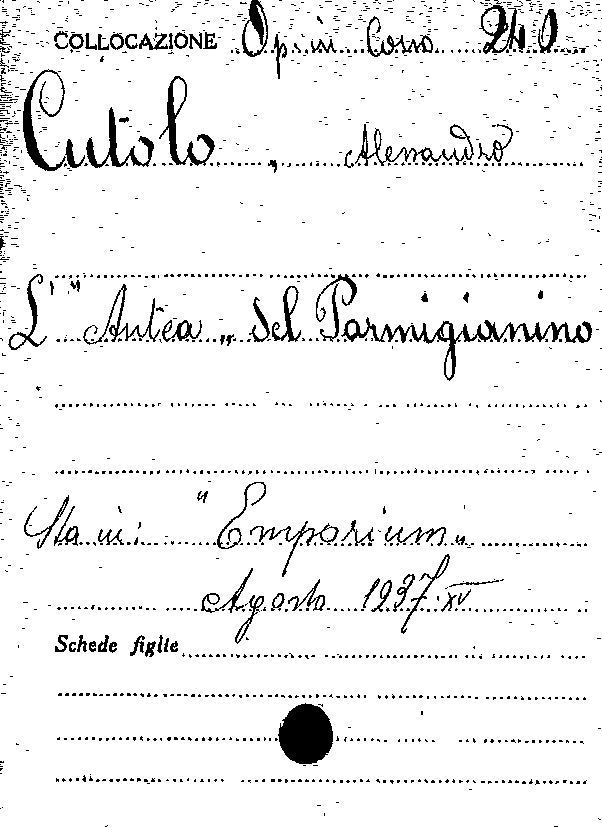 COLLOCAZIONE Op. in Coro 240
Cutolo, Alessandro
L' "Antea„ del Parmigianino
Sta in: "Emporium„
Agosto 1937. XV
Schede figlie